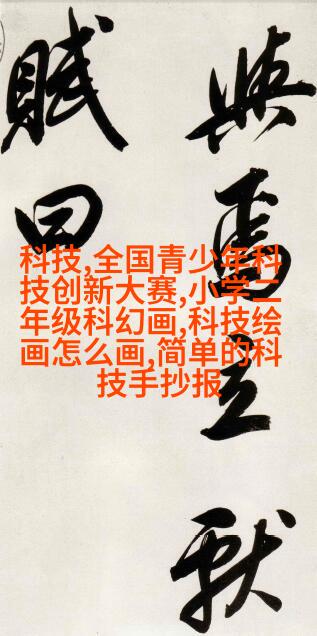 與
立
賦曰
科技,全国青少年科
技创新大赛,小学二
年级科幻画,科技绘
画怎么画,简单的科
技手抄报